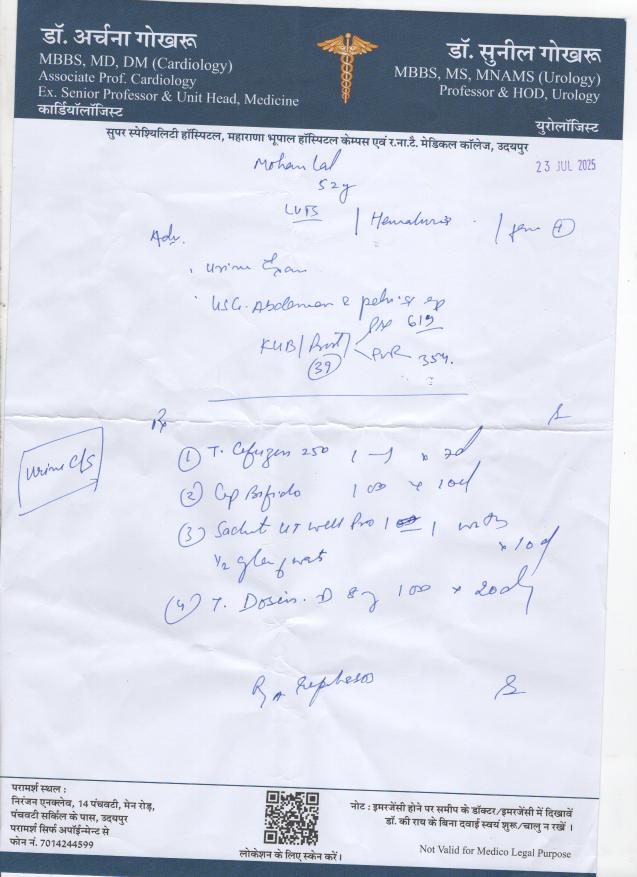 डॉ. अर्चना गोखरू
MBBS, MD, DM (Cardiology)
Associate Prof. Cardiology
Ex. Senior Professor & Unit Head, Medicine
कार्डियॉलॉजिस्ट
डॉ. सुनील गोखरू
MBBS, MS, MNAMS (Urology)
Professor & HOD, Urology
युरोलॉजिस्ट
सुपर स्पेश्यिलिटी हॉस्पिटल, महाराणा भूपाल हॉस्पिटल केम्पस एवं र.ना.टै. मेडिकल कॉलेज, उदयपुर
Mohan Lal
23 JUL 2025
52y
LUTS | Hematuria |
Adv.
Urine Exam
USG. Abdomen & pelvis
619
KUB/Prost
39
PVR 354.
Rx
Urine C/S
① T. 250 1 — 1 x 7d
② Cap Bifido 100 x 10d
③ Sachet UT well Pro 1 — 1 with
1/2 glass of water x 10d
④ T. D 8 mg 100 x 20d
परामर्श स्थल :
निरंजन एनक्लेव, 14 पंचवटी, मेन रोड़,
पंचवटी सर्किल के पास, उदयपुर
परामर्श सिर्फ अपॉईन्मेन्ट से
फोन नं. 7014244599
लोकेशन के लिए स्केन करें।
नोट : इमरजेंसी होने पर समीप के डॉक्टर/इमरजेंसी में दिखावें
डॉ. की राय के बिना दवाई स्वयं शुरू/चालु न रखें ।
Not Valid for Medico Legal Purpose